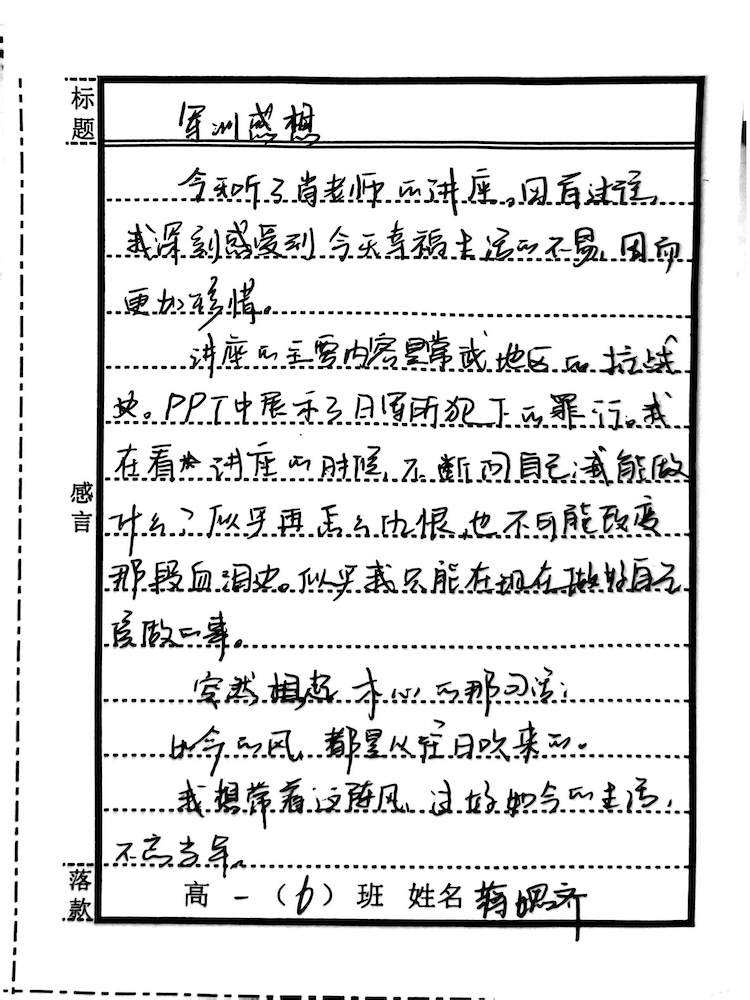 标题
军训感想
今天听了肖老师的讲座。回首过往,
我深刻感受到今天幸福生活的不易,因而
更加珍惜。
讲座的主要内容是常或地区的抗战
史。PPT中展示了日军所犯下的罪行。我
在看讲座的时候,不断问自己:我能做
什么?似乎再怎么仇恨,也不可能改变
那段血泪史。似乎我只能在现在做好自己
应做的事。
感言
突然想起木心的那句话:
如今的风,都是从往日吹来的。
我想带着这阵风,过好如今的生活,
不忘当年。
落款
高一(6)班 姓名 蒋 齐